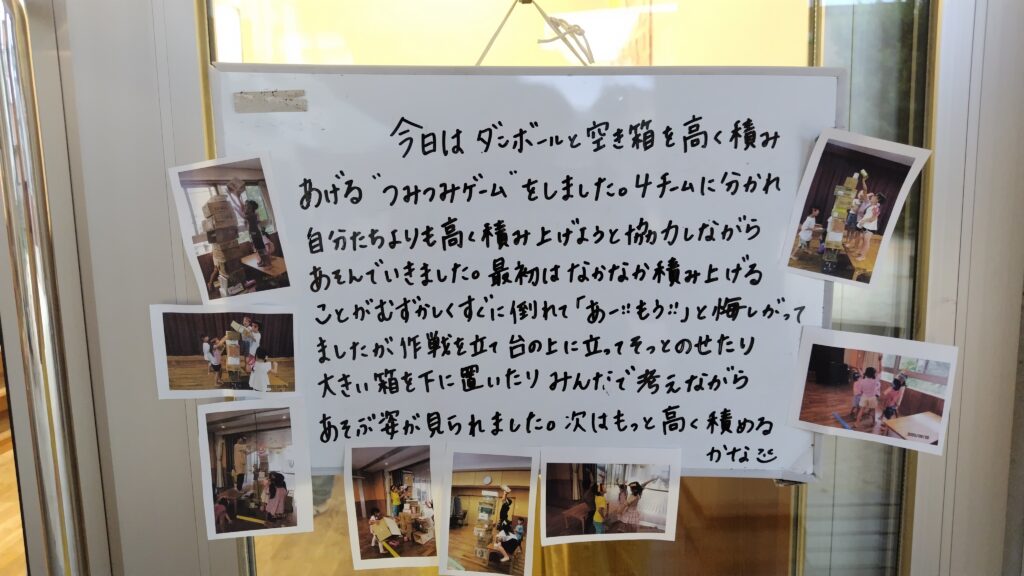 今日は ダンボールと空き箱を高く積み
あげる"つみつみゲーム"をしました。4チームに分かれ
自分たちよりも高く積み上げようと協力しながら
あそんでいきました。最初はなかなか積み上げる
ことがむずかしくすぐに倒れて「あー!!もう!!」と悔しがって
ましたが作戦を立て台の上に立ってそっとのせたり
大きい箱を下に置いたりみんなで考えながら
あそぶ姿が見られました。次はもっと高く積める
かな